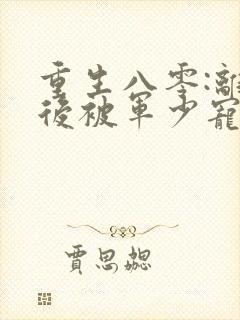 重生八零:離
後被軍少寵
賈思勰